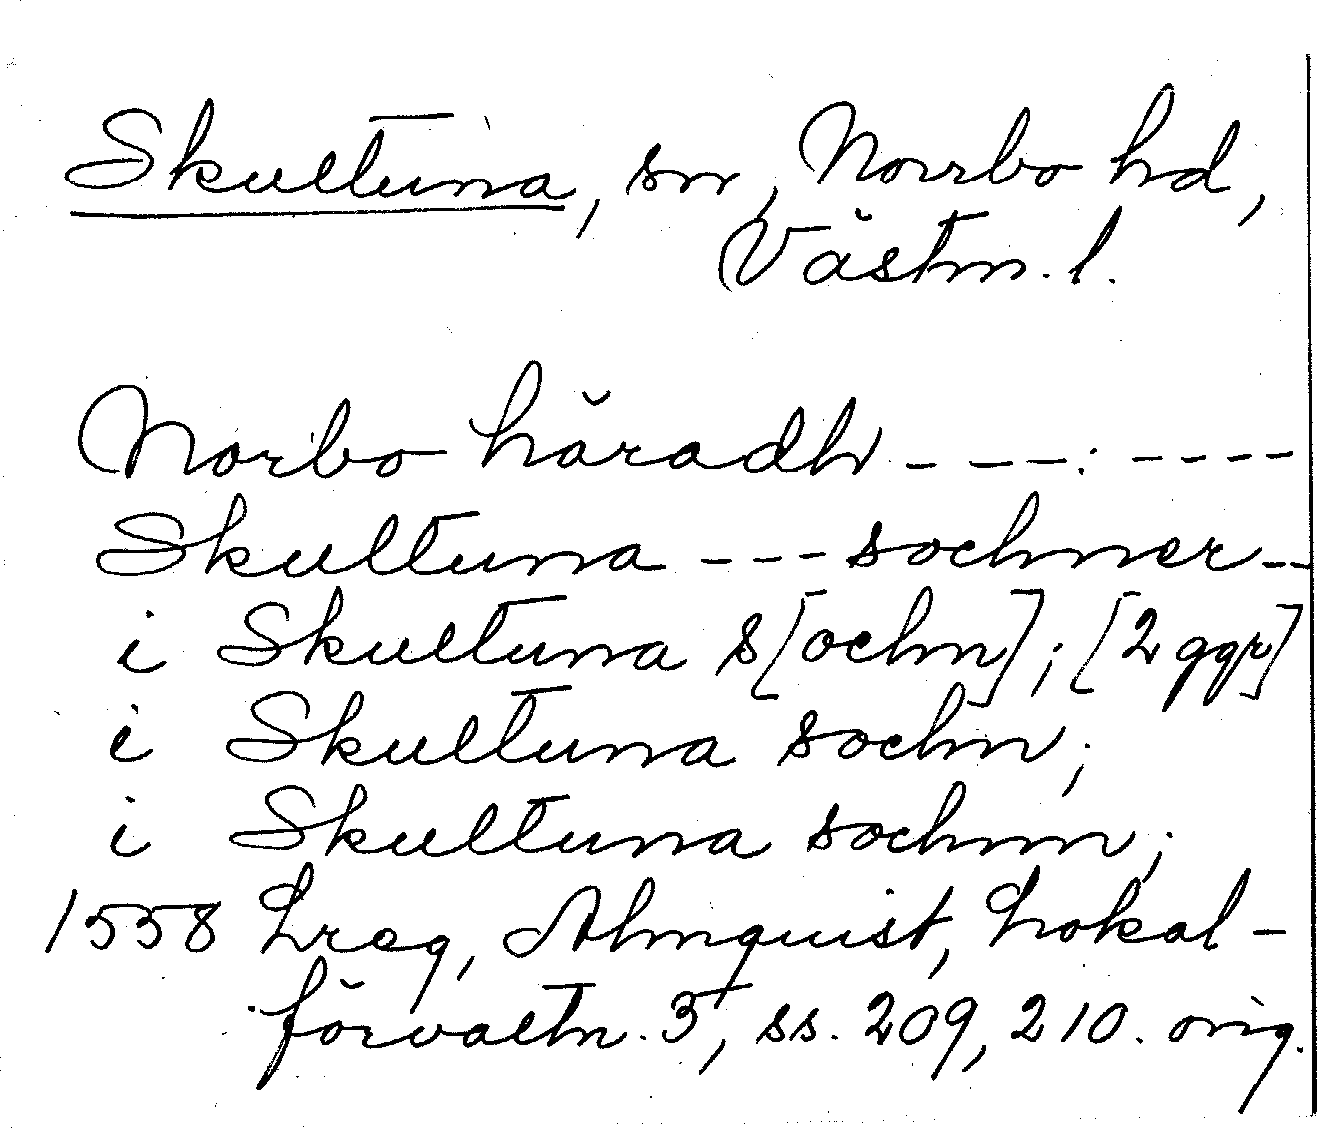 Skultuna, sn, Norrbo hd,
Västm. l.
Norbo häradh - - - -: - - - -
Skultuna - - - sochner - -
i Skultuna s[ochn]; [2 ggr]
i Skultuna sochn;
i Skultuna sochnn;
1558 Lreg, Almquist, Lokal-
förvaltn. 3, ss. 209, 210. orig.